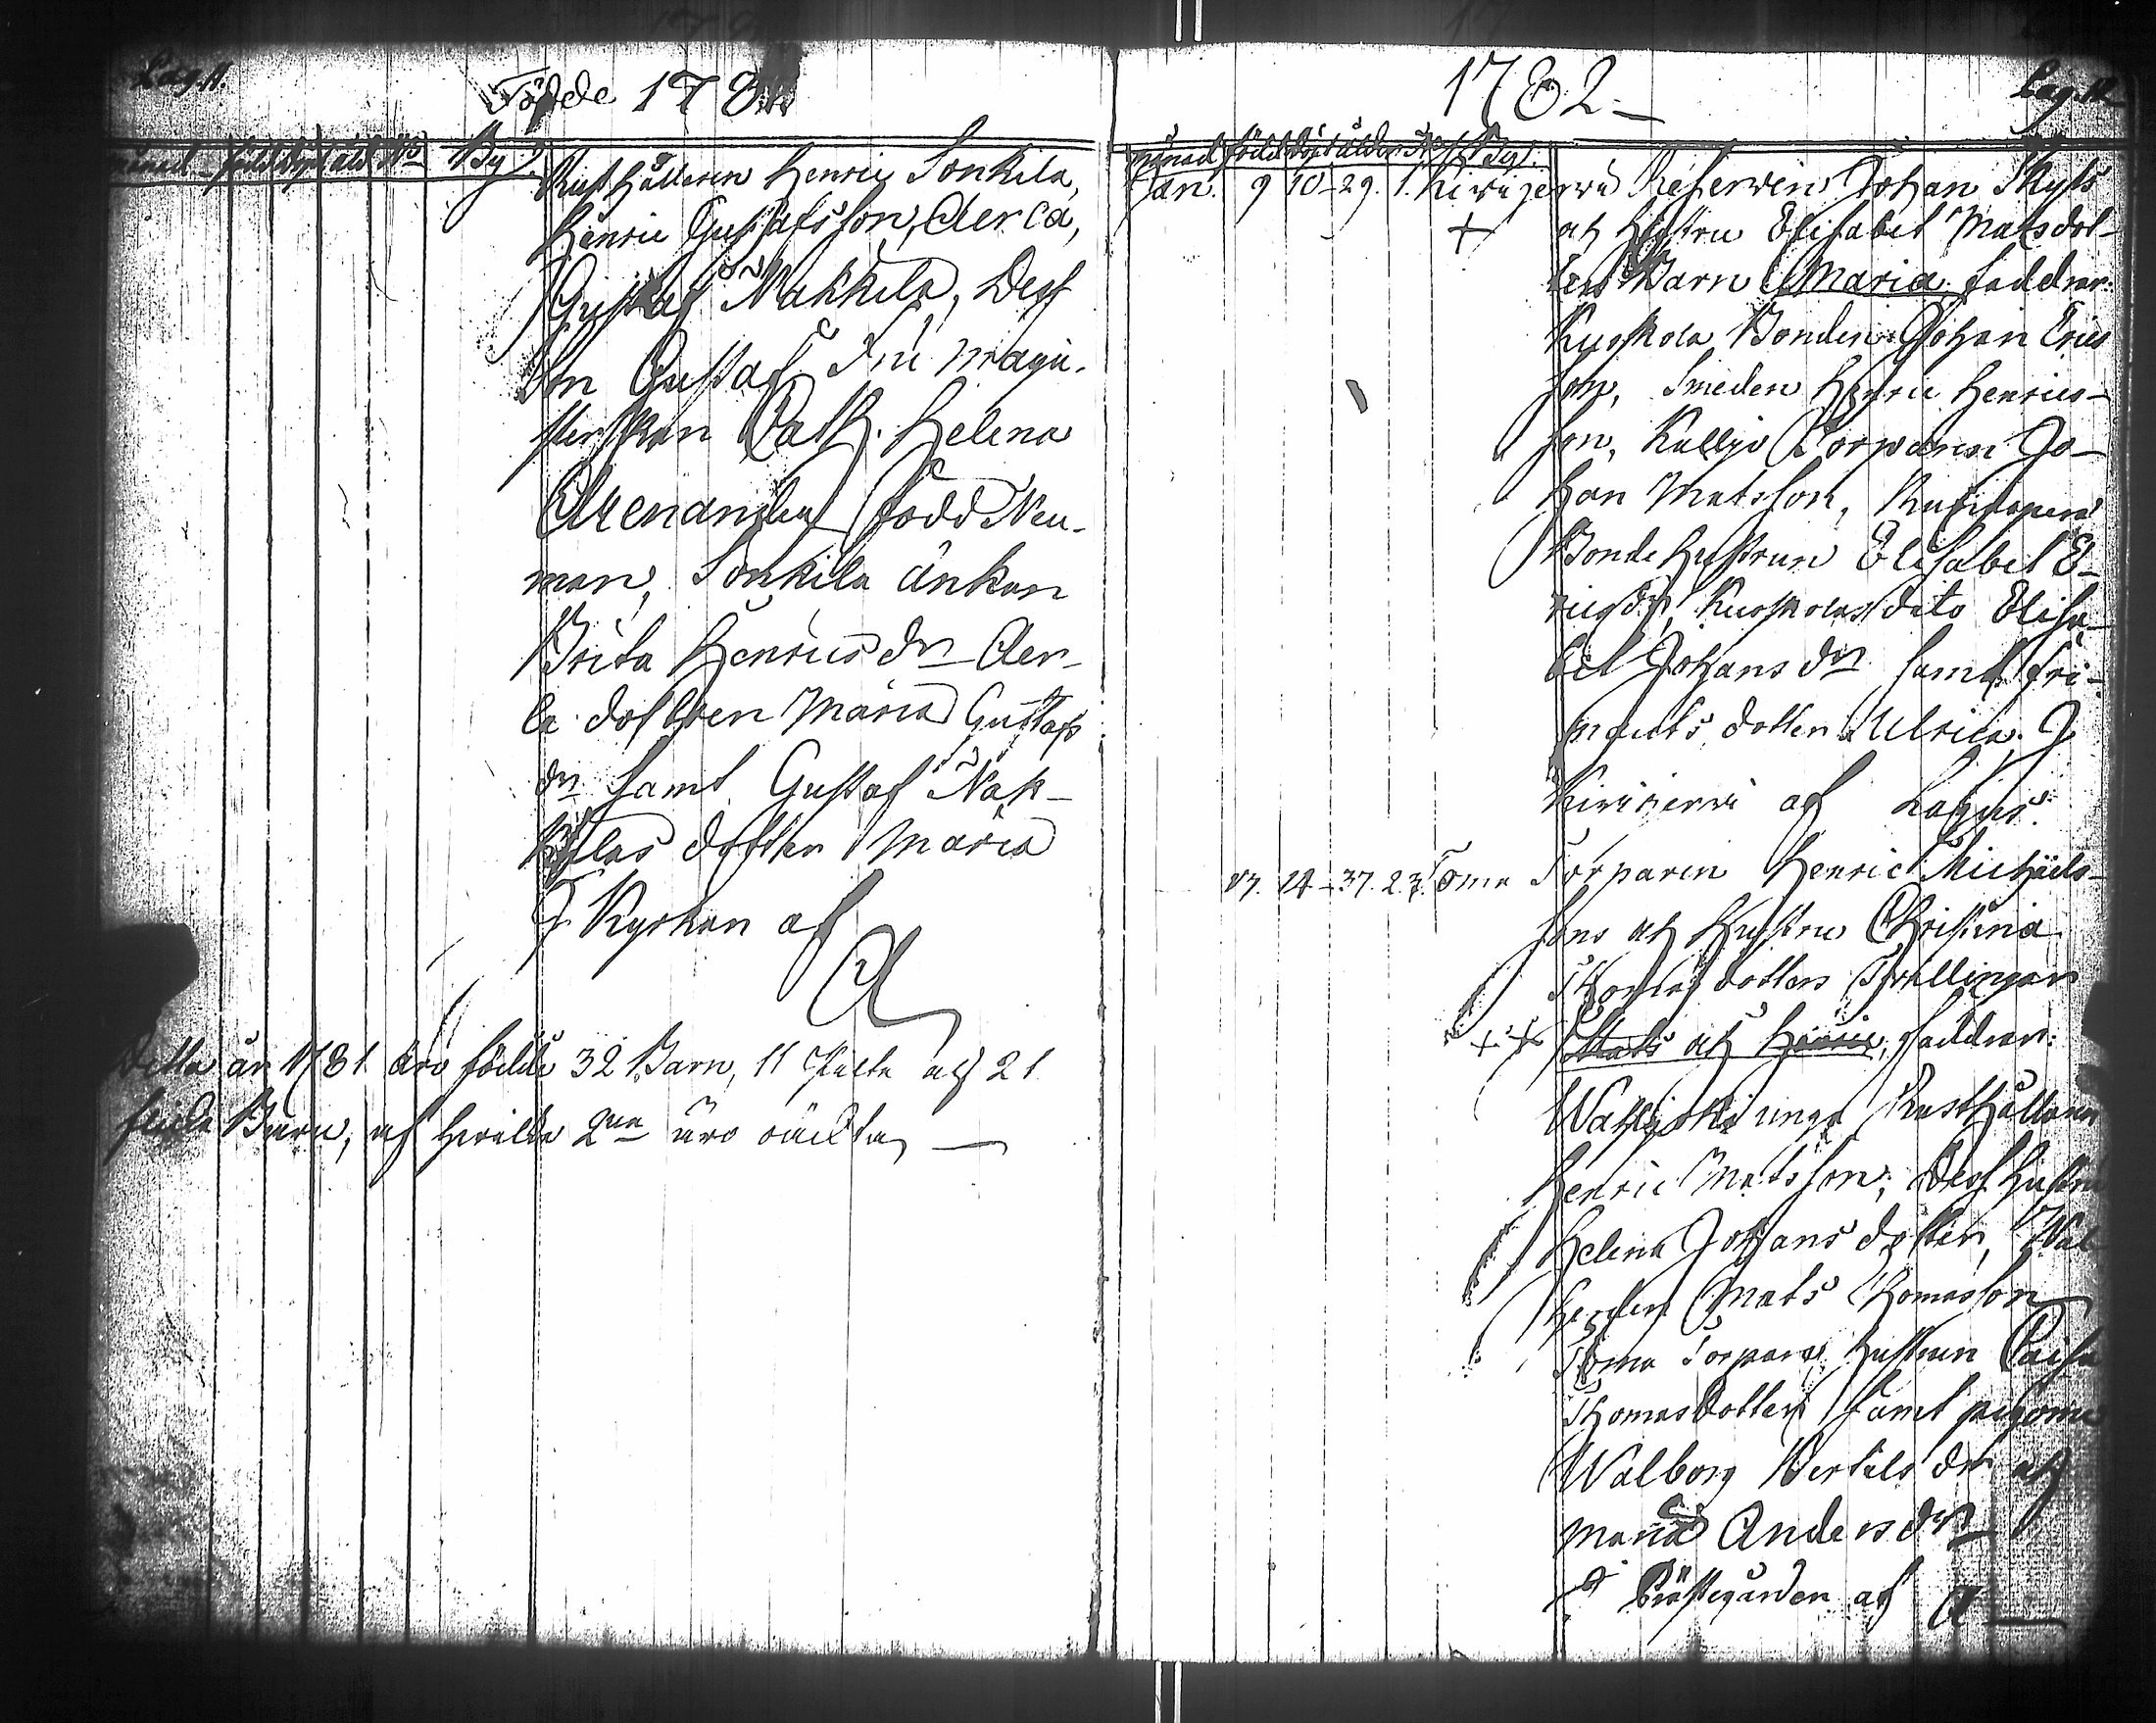 Pag. 11.
Födde 1781
månad födde döpt åld No By
Rusthållaren Henric Sonkila,
Henric Gustafsson Aerla,
Gustaf Nakkila, Dess
Son Gustaf. Fru Magi-
sterskan Cath. Helena
Arenander född Neu-
man, Sonkila änkan
Brita Henricsdr Aer-
la dotteren Maria Gustafs
dr samt Gustaf Nak-
kilas dotter Maria
J Kyrkan af
A
Detta år 1781 äro födde 32 Barn, 11 äkta och 21
Barn, af hvilka 2ne äro oäkta —
1782
Pag. 12
månad född döpt ålder No By
Jan. 9 10 29. 1. Kirvijerwi Reserwen Johan Skytts
+ och Hustru Elisabet Matsdot-
ters Barn Maria faddrar:
Kuoskola Bonden Johan Erics
son, Smeden Henric Henrics-
son, Kallio Torparen Jo-
han Matsson,
Bonde Hustrun Elisabet E-
ricsdr, Kuoskolas dito Elisa-
bet Johansdr samt
dotter Ulrica. J
Kirvijerwi af
13. 14 37. 2. 3. Toma Torparen Henric Michaels-
sons och Hustru Christina
Thomasdotters Twillingar
++ Mats och Henric, faddrar:
Rusthållaren
Henric Matsson, Dess Hustru
Helena Johansdotter,
Mats Thomasson
Toma Torpare Hustrun Caisa
Thomasdotter samt pigorne
Walborg Bertilsdr och
Maria Andersdr
J Prästegården af A